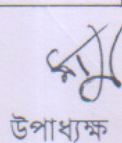 উপাধ্যক্ষ